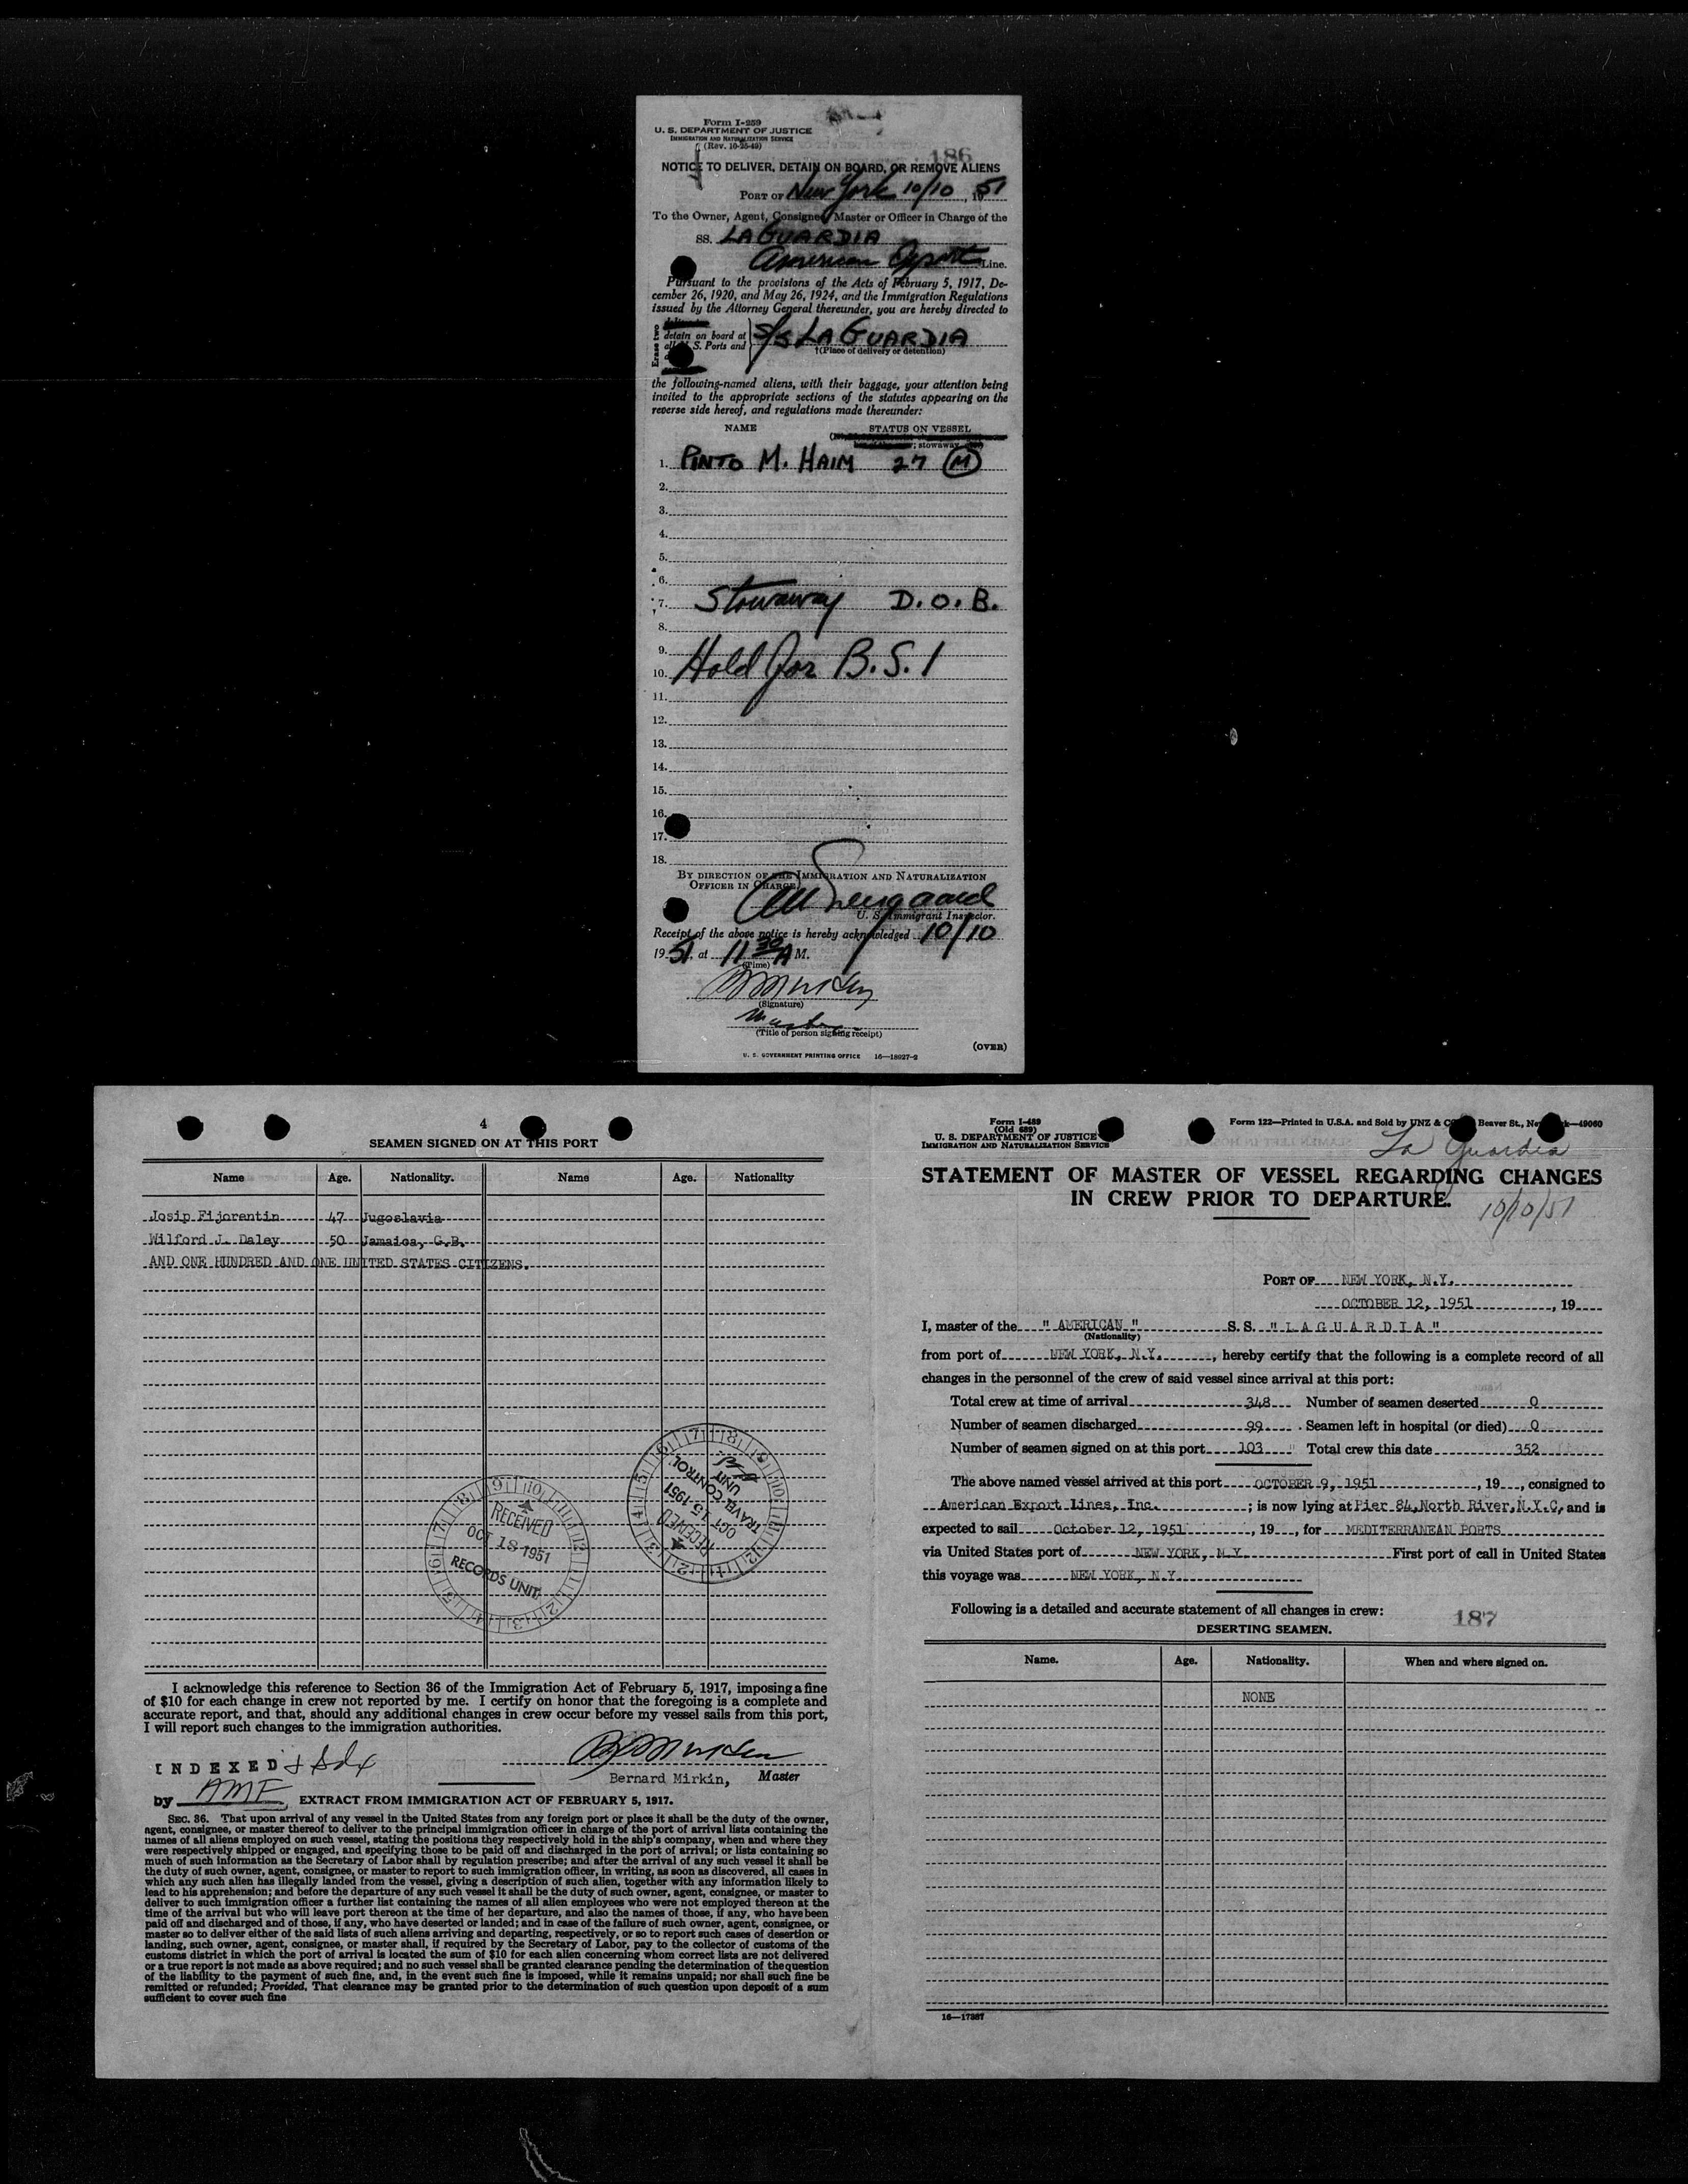 Form I-259
U. S. DEPARTMENT OF JUSTICE
IMMIGRATION AND NATURALIZATION SERVICE
(Rev. 10-25-49)
186
NOTICE TO DELIVER, DETAIN ON BOARD, OR REMOVE ALIENS
PORT OF New York 10/10, 1951
To the Owner, Agent, Consignee, Master or Officer in Charge of the
SS. LA GUARDIA
American Export Line.
Pursuant to the provisions of the Acts of February 5, 1917, De-
cember 26, 1920, and May 26, 1924, and the Immigration Regulations
issued by the Attorney General thereunder, you are hereby directed to
Erase two
detain on board at
all U. S. Ports and
S/S LA GUARDIA
†(Place of delivery or detention)
the following-named aliens, with their baggage, your attention being
invited to the appropriate sections of the statutes appearing on the
reverse side hereof, and regulations made thereunder:
NAME STATUS ON VESSEL
; stowaway
1. PINTO M. HAIM 27 (M)
2.
3.
4.
5.
6.
7. Stowaway D.O.B.
8.
9.
10. Hold for B.S.I
11.
12.
13.
14.
15.
16.
17.
18.
BY DIRECTION OF THE IMMIGRATION AND NATURALIZATION
OFFICER IN CHARGE
U. S. Immigrant Inspector.
Receipt of the above notice is hereby acknowledged 10/10
1951, at 11 30 A M.
(Time)
(Signature)
Master
(Title of person signing receipt)
(OVER)
U. S. GOVERNMENT PRINTING OFFICE 16—18027-2
4
SEAMEN SIGNED ON AT THIS PORT
Name Age. Nationality. Name Age. Nationality
Josip Fijorentin 47 Jugoslavia
Wilford J. Daley 50 Jamaica, G.B.
AND ONE HUNDRED AND ONE UNITED STATES CITIZENS.
RECEIVED
OCT 18 1951
RECORDS UNIT
RECEIVED
OCT 15 1951
TRAVEL CONTROL
UNIT
I acknowledge this reference to Section 36 of the Immigration Act of February 5, 1917, imposing a fine
of $10 for each change in crew not reported by me. I certify on honor that the foregoing is a complete and
accurate report, and that, should any additional changes in crew occur before my vessel sails from this port,
I will report such changes to the immigration authorities.
INDEXED
Bernard Mirkin, Master
by AMF
EXTRACT FROM IMMIGRATION ACT OF FEBRUARY 5, 1917.
SEC. 36. That upon arrival of any vessel in the United States from any foreign port or place it shall be the duty of the owner,
agent, consignee, or master thereof to deliver to the principal immigration officer in charge of the port of arrival lists containing the
names of all aliens employed on such vessel, stating the positions they respectively hold in the ship's company, when and where they
were respectively shipped or engaged, and specifying those to be paid off and discharged in the port of arrival; or lists containing so
much of such information as the Secretary of Labor shall by regulation prescribe; and after the arrival of any such vessel it shall be
the duty of such owner, agent, consignee, or master to report to such immigration officer, in writing, as soon as discovered, all cases in
which any such alien has illegally landed from the vessel, giving a description of such alien, together with any information likely to
lead to his apprehension; and before the departure of any such vessel it shall be the duty of such owner, agent, consignee, or master to
deliver to such immigration officer a further list containing the names of all alien employees who were not employed thereon at the
time of the arrival but who will leave port thereon at the time of her departure, and also the names of those, if any, who have been
paid off and discharged and of those, if any, who have deserted or landed; and in case of the failure of such owner, agent, consignee, or
master so to deliver either of the said lists of such aliens arriving and departing, respectively, or so to report such cases of desertion or
landing, such owner, agent, consignee, or master shall, if required by the Secretary of Labor, pay to the collector of customs of the
customs district in which the port of arrival is located the sum of $10 for each alien concerning whom correct lists are not delivered
or a true report is not made as above required; and no such vessel shall be granted clearance pending the determination of the question
of the liability to the payment of such fine, and, in the event such fine is imposed, while it remains unpaid; nor shall such fine be
remitted or refunded; Provided, That clearance may be granted prior to the determination of such question upon deposit of a sum
sufficient to cover such fine
Form I-489
(Old 689)
U. S. DEPARTMENT OF JUSTICE
IMMIGRATION AND NATURALIZATION SERVICE
Form 122—Printed in U.S.A. and Sold by UNZ & CO., Beaver St., New York—49060
La Guardia
STATEMENT OF MASTER OF VESSEL REGARDING CHANGES
IN CREW PRIOR TO DEPARTURE.
10/10/51
PORT OF NEW YORK, N.Y.
OCTOBER 12, 1951, 19
I, master of the " AMERICAN " S.S. "L A G U A R D I A"
(Nationality)
from port of NEW YORK, N.Y., hereby certify that the following is a complete record of all
changes in the personnel of the crew of said vessel since arrival at this port:
Total crew at time of arrival 348 Number of seamen deserted 0
Number of seamen discharged 99 Seamen left in hospital (or died) 0
Number of seamen signed on at this port 103 Total crew this date 352
The above named vessel arrived at this port OCTOBER 9, 1951, 19, consigned to
American Export Lines, Inc. ; is now lying at Pier 84, North River, N.Y.C, and is
expected to sail October 12, 1951, 19, for MEDITERRANEAN PORTS
via United States port of NEW YORK, N.Y. First port of call in United States
this voyage was NEW YORK, N.Y.
Following is a detailed and accurate statement of all changes in crew:
187
DESERTING SEAMEN.
Name. Age. Nationality. When and where signed on.
NONE
16—17387